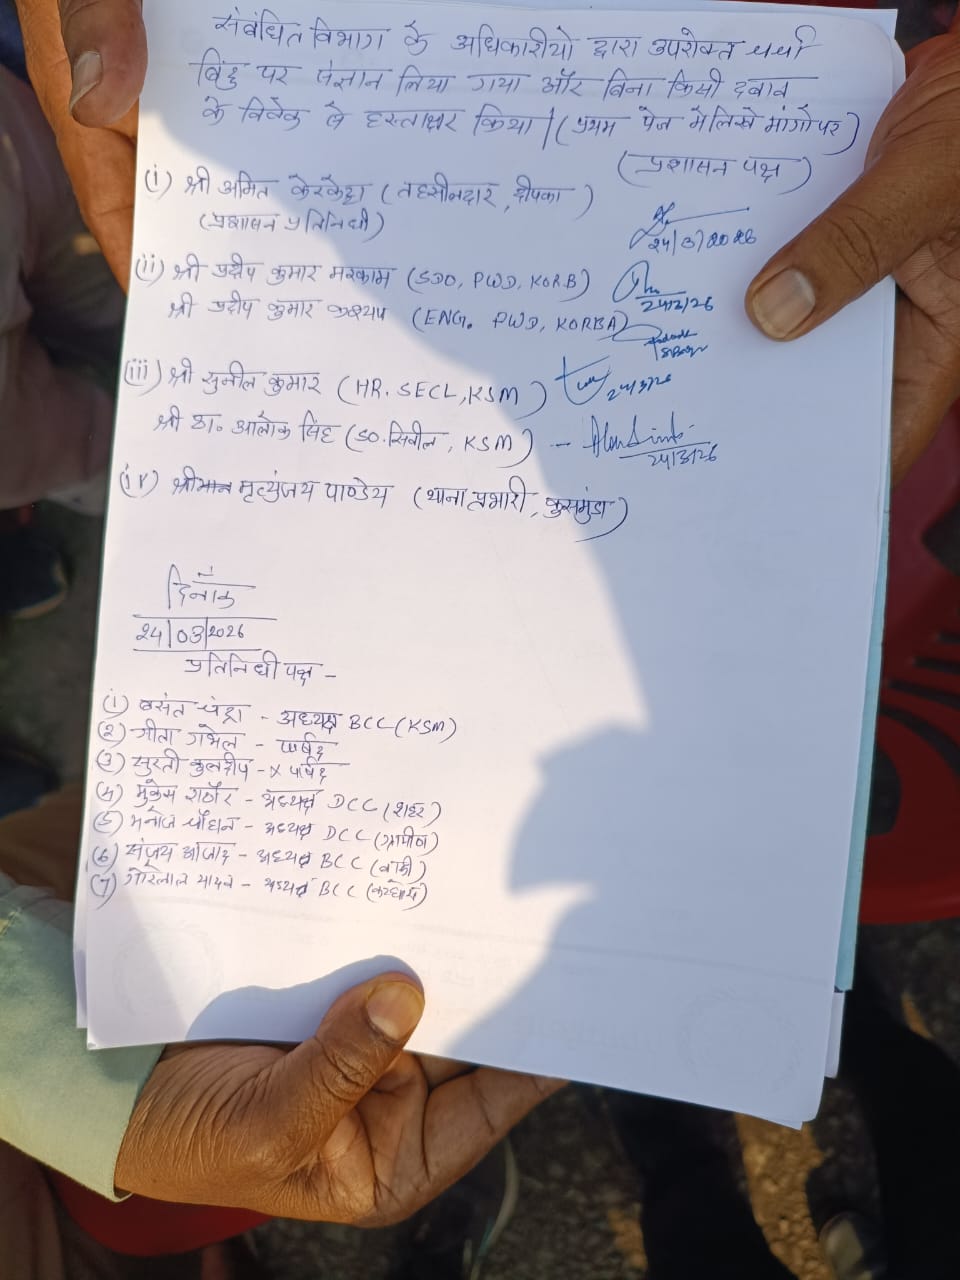 संबंधित विभाग के अधिकारीयो द्वारा उपरोक्त चर्चा
बिंदु पर संज्ञान लिया गया और बिना किसी दबाव
के विवेक से हस्ताक्षर किया। (प्रथम पेज मे लिखे मांगो पर)
(प्रशासन पक्ष)
(i) श्री अमित केरकेट्टा (तहसीलदार, दीपका)
(प्रशासन प्रतिनिधी)
24/3/2026
(ii) श्री प्रदीप कुमार मरकाम (SDO, PWD, KORB)
24/3/26
श्री प्रदीप कुमार कश्यप (ENG. PWD, KORBA)
(iii) श्री सुनील कुमार (HR. SECL, KSM)
24/3/26
श्री डा. आलोक सिंह (SO. सिवील, KSM) -
24/3/26
(iv) श्रीमान मृत्युंजय पाण्डेय (थाना प्रभारी, कुसमुंडा)
दिनाँक
24/03/2026
प्रतिनिधी पक्ष -
(1) बसंत चंद्रा - अध्यक्ष BCC (KSM)
(2) गीता गभेल - पार्षद
(3) सुरती कुलदीप - x पार्षद
(4) मुकेस राठौर - अध्यक्ष DCC (शहर)
(5) मनोज चौहान - अध्यक्ष DCC (ग्रामीण)
(6) संजय आजाद - अध्यक्ष BCC
(7) गोरेलाल यादव - अध्यक्ष BCC